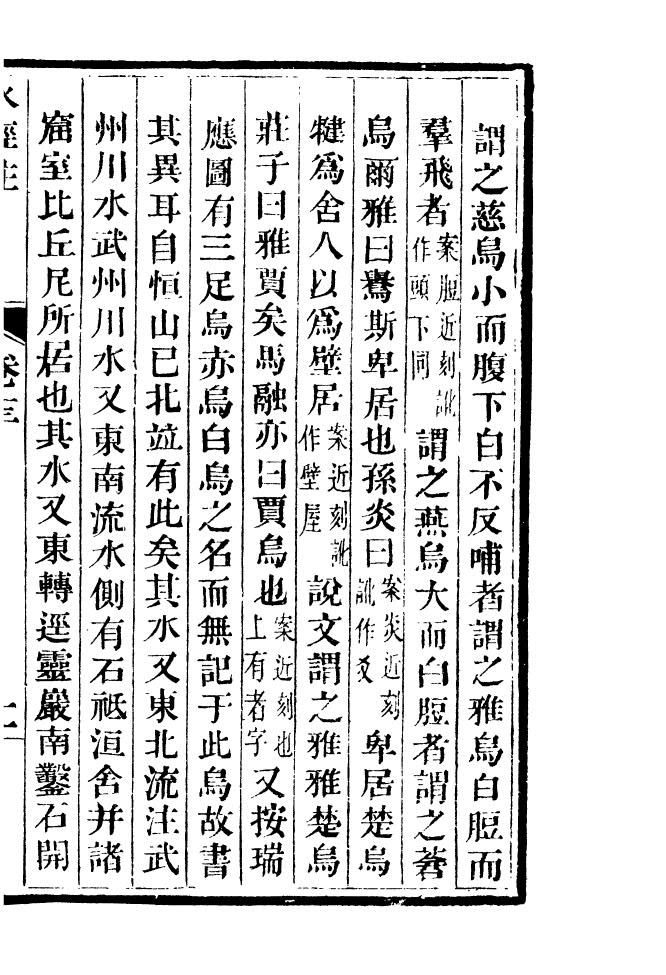 謂之慈烏小而腹下白不反哺者謂之雅烏白脰而
羣飛者案脰近刻訛作頭下同謂之燕烏大而白脰者謂之蒼
烏爾雅曰鸒斯卑居也孫炎曰案炎近刻訛作爻卑居楚烏
犍爲舍人以爲壁居案近刻訛作壁屋說文謂之雅雅楚烏
莊子曰雅賈矣馬融亦曰賈烏也案近刻也上有者字又按瑞
應圖有三足烏赤烏白烏之名而無記于此烏故書
其異耳自恒山已北竝有此矣其水又東北流注武
州川水武州川水又東南流水側有石祗洹舍并諸
窟室比丘尼所居也其水又東轉逕靈巖南鑿石開
水經注 卷十三 十一